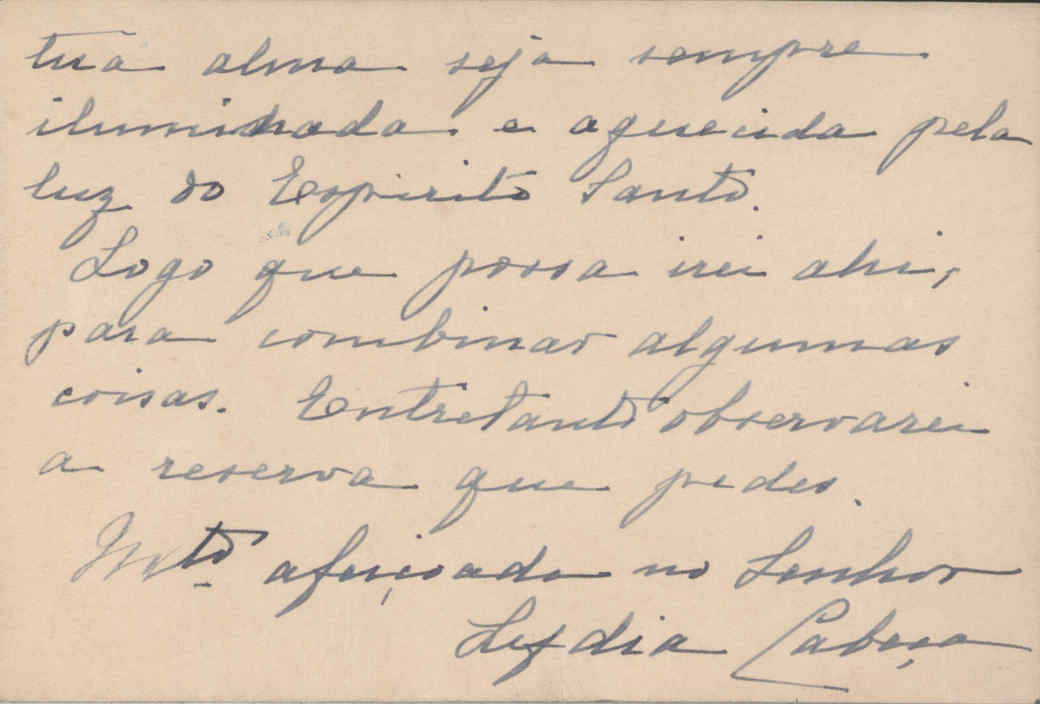 tua alma seja sempre
iluminada e aquecida pela
luz do Espirito Santo.
Logo que possa irei ahi,
para combinar algumas
coisas. Entretanto observarei
a reserva que pedes.
Mto afeiçoada no Senhor
Lydia Cabeça